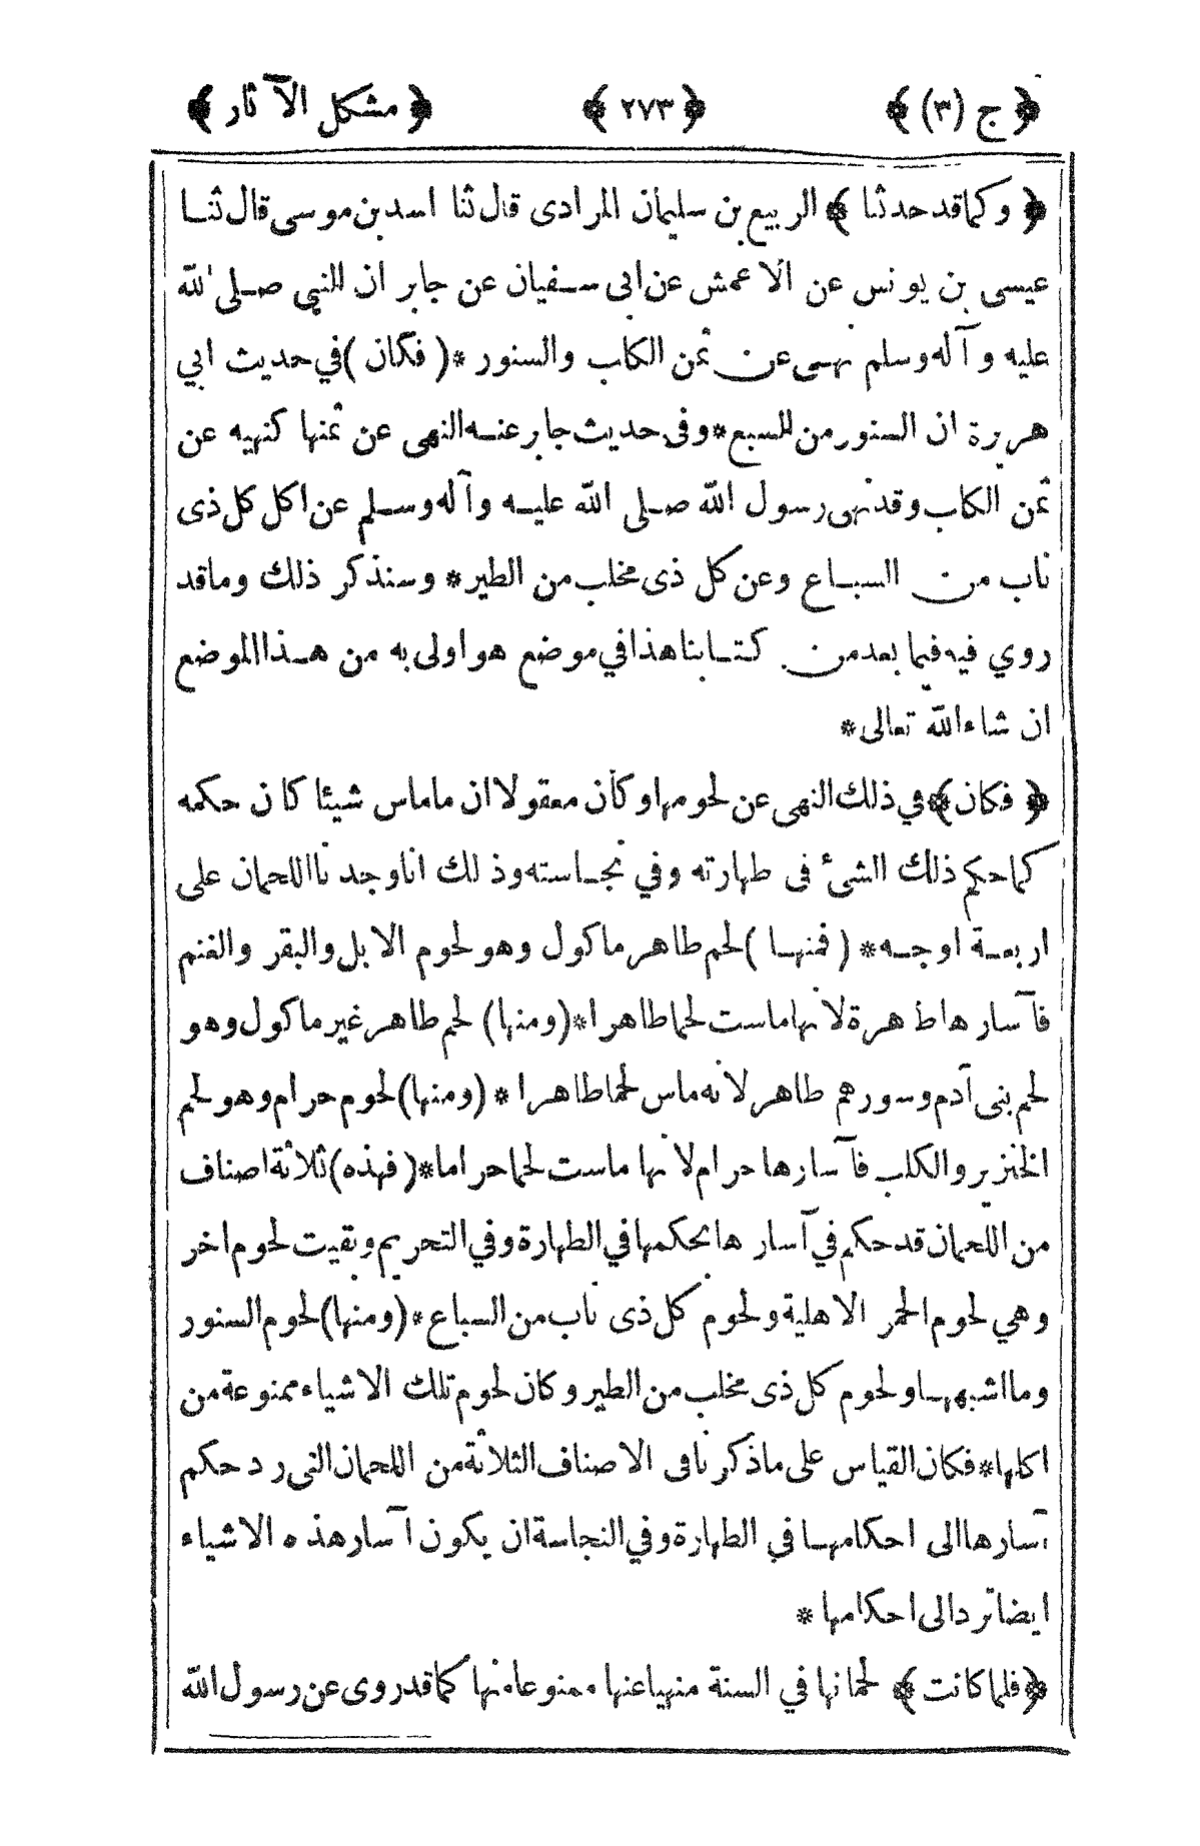 ﴿ ج (٣) ﴾ ﴿ ٢٧٣ ﴾ ﴿ مشكل الآثار ﴾
﴿ وكما قد حدثنا ﴾ الربيع بن سليمان المرادى قال ثنا اسد بن موسى قال ثنا
عيسى بن يونس عن الاعمش عن ابى سفيان عن جابر ان النبي صلى الله
عليه وآله وسلم نهى عن ثمن الكلب والسنور * ( فكان ) في حديث ابي
هريرة ان السنور من السبع * وفى حديث جابر عنه النهى عن ثمنها كنهيه عن
ثمن الكلب وقد نهى رسول الله صلى الله عليه وآله وسلم عن اكل كل ذى
ناب من السباع وعن كل ذى مخلب من الطير * وسنذكر ذلك وما قد
روي فيه فيما بعد من كتابنا هذا في موضع هو اولى به من هذا الموضع
ان شاء الله تعالى *
﴿ فكان ﴾ في ذلك النهى عن لحومها وكان معقولا ان ماماس شيئا كان حكمه
كما حكم ذلك الشئ فى طهارته وفي نجاسته وذلك انا وجدنا اللحمان على
اربعة اوجه * ( فمنها ) لحم طاهر ماكول وهو لحوم الابل والبقر والغنم
فآسارها طاهرة لانها ماست لحما طاهرا * ( ومنها ) لحم طاهر غير ماكول وهو
لحم بنى آدم وسورهم طاهر لانه ماس لحما طاهرا * ( ومنها ) لحوم حرام وهو لحم
الخنزير والكلب فآسارها حرام لانها ماست لحما حراما * ( فهذه ) ثلاثة اصناف
من اللحمان قد حكم في آسارها بحكمها في الطهارة وفي التحريم وبقيت لحوم اخر
وهي لحوم الحمر الاهلية ولحوم كل ذى ناب من السباع * ( ومنها ) لحوم السنور
وما اشبهها ولحوم كل ذى مخلب من الطير وكان لحوم تلك الاشياء ممنوعة من
اكلها * فكان القياس على ماذكرنا فى الاصناف الثلاثة من اللحمان التى رد حكم
آسارها الى احكامها في الطهارة وفي النجاسة ان يكون آسار هذه الاشياء
ايضا ترد الى احكامها *
﴿ فلما كانت ﴾ لحمانها في السنة منهيا عنها ممنوعا منها كما قد روى عن رسول الله